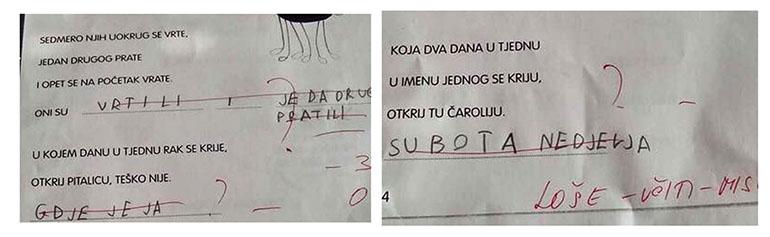 SEDMERO NJIH UOKRUG SE VRTE,
JEDAN DRUGOG PRATE
I OPET SE NA POČETAK VRATE.
ONI SU VRTILI I JE DA DRUG
PRATILI
?
U KOJEM DANU U TJEDNU RAK SE KRIJE,
- 3
OTKRIJ PITALICU, TEŠKO NIJE.
GDJE JE JA ? - 0
KOJA DVA DANA U TJEDNU
U IMENU JEDNOG SE KRIJU,
? -
OTKRIJ TU ČAROLIJU.
SUBOTA NEDJELJA
4
LOŠE -